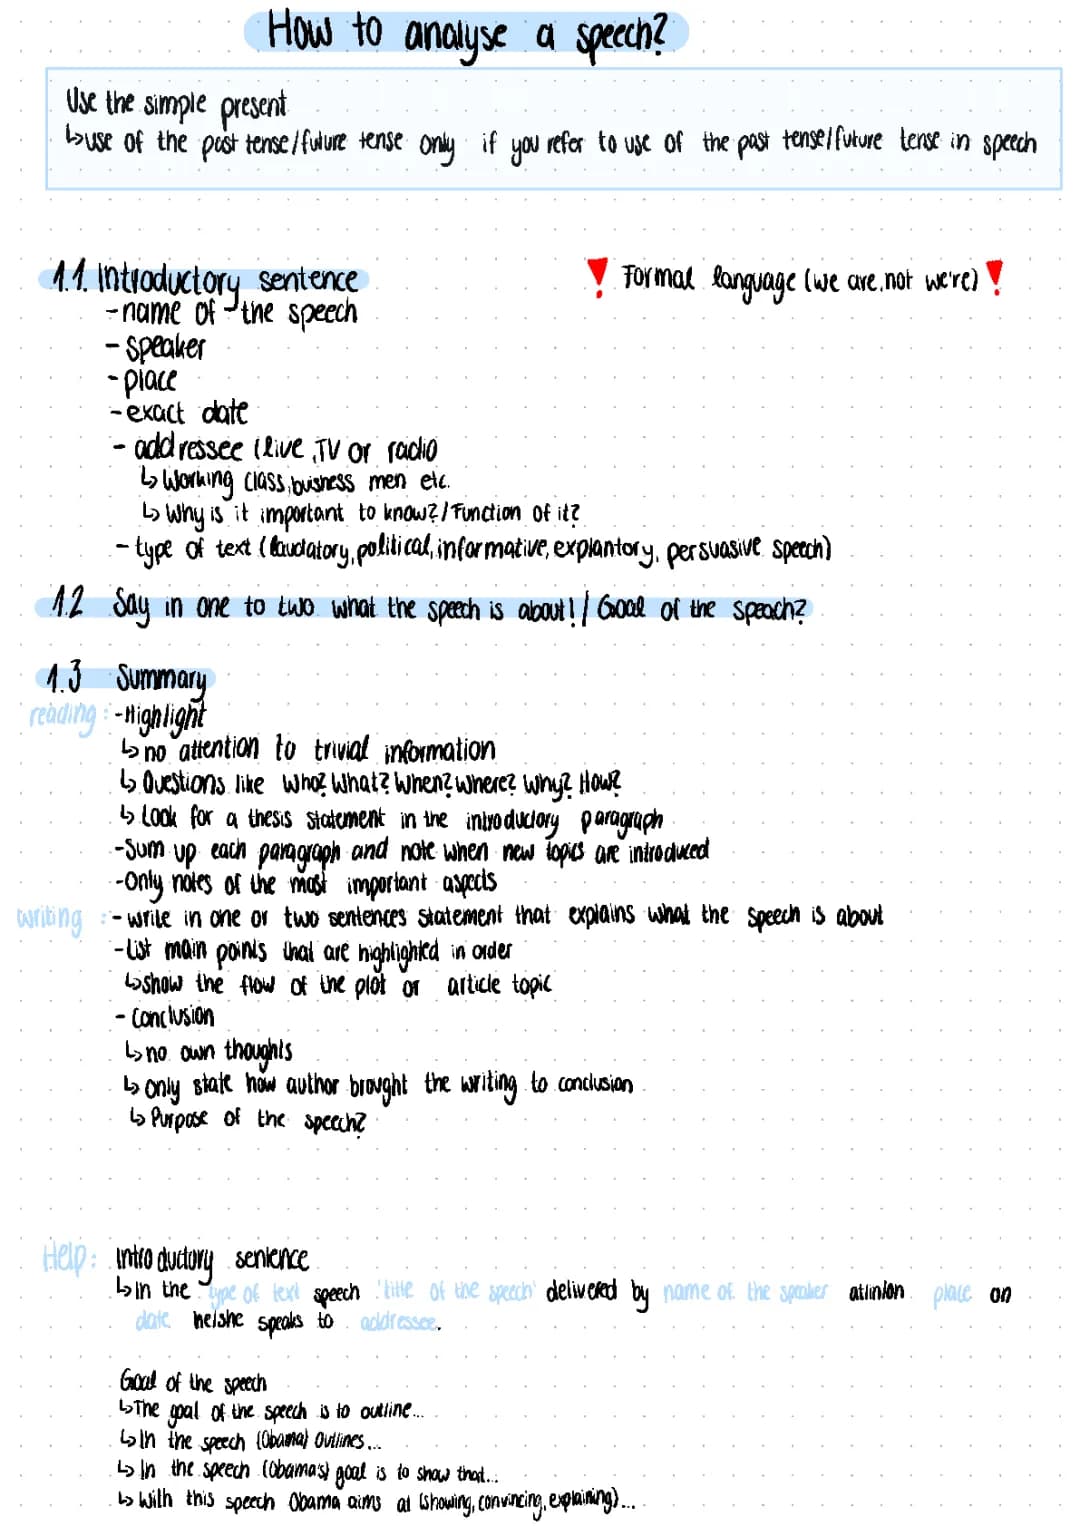 How to analyse a speech?
Use the simple present
↳use of the past tense/future tense only if you refer to use of the past tense/future tense in speech
1.1. Introductory sentence
❗ Formal language (we are, not we're) ❗
-name of the speech
- speaker
- place
-exact date
- addressee (live, TV or radio
↳ Working class, buisness men etc.
↳ Why is it important to know?/Function of it?
- type of text (laudatory, political, informative, explantory, persuasive speech)
1.2 Say in one to two what the speech is about! / Goal of the speach?
1.3 Summary
reading: -Highlight
↳ no attention to trivial information
↳ Questions like Who? What? When? Where? Why? How?
↳ Look for a thesis statement in the introductory paragraph
-Sum up each paragraph and note when new topics are introduced
-Only notes of the most important aspects
writing :- write in one or two sentences statement that explains what the speech is about
-List main points that are highlighted in order
↳show the flow of the plot or article topic
- Conclusion
↳ no own thoughts
↳ only state how author brought the writing to conclusion
↳ Purpose of the speech?
Help: Introductory sentence
↳ In the type of text speech 'title of the speech' delivered by name of the speaker at/in/on place on
date he/she speaks to addressee.
Goal of the speech
↳The goal of the speech is to outline...
↳ In the speech (Obama) Outlines...
↳ In the speech (Obama's) goal is to show that...
↳ With this speech Obama aims at (showing, convincing, explaining)...